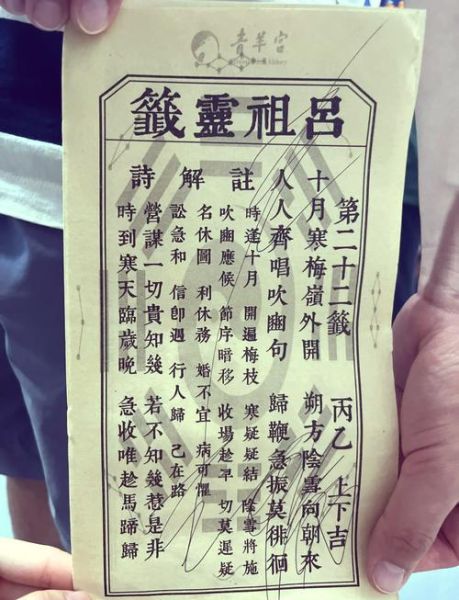 青羊宮
呂祖靈籤
第二十二籤 丙乙 上下吉
十月寒梅嶺外開 朔方陰雲向朝來
人人齊唱吹豳句 歸鞭急振莫徘徊
註解詩
時逢十月 開遍梅枝 寒疑疑結 陰雲將施
吹豳應候 節序暗移 收場趁早 切莫遲疑
名休圖 利休務 婚不宜 病可懼
訟急和 信即遇 行人歸 己在路
營謀一切貴知幾 若不知幾惹是非
時到寒天臨歲晚 急收唯趁馬蹄歸